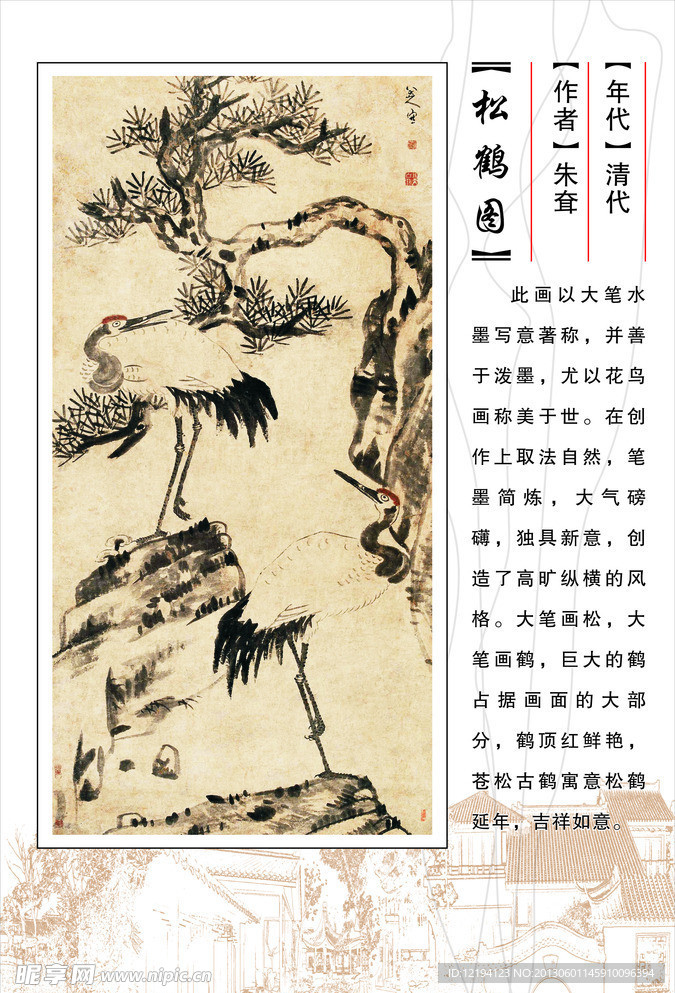 【年代】清代
【作者】朱耷
【松鹤图】
此画以大笔水
墨写意著称，并善
于泼墨，尤以花鸟
画称美于世。在创
作上取法自然，笔
墨简炼，大气磅
礴，独具新意，创
造了高旷纵横的风
格。大笔画松，大
笔画鹤，巨大的鹤
占据画面的大部
分，鹤顶红鲜艳，
苍松古鹤寓意松鹤
延年，吉祥如意。
昵享网 www.nipic.cn
ID:12194123 NO:20130601145910096394